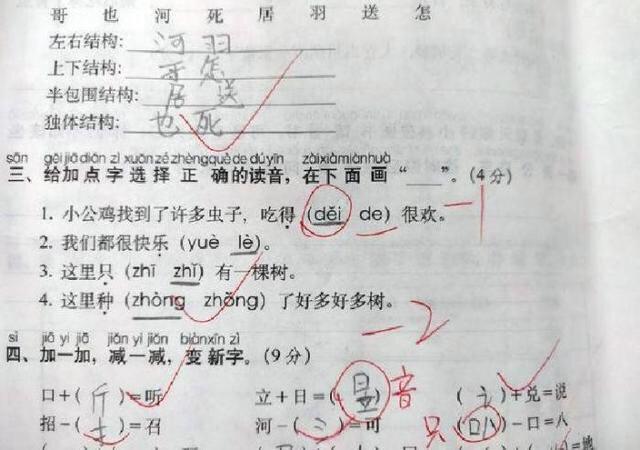 哥 也 河 死 居 羽 送 怎
左右结构: 河 羽
上下结构: 哥 怎
半包围结构: 居 送
独体结构: 也 死
sān gěi jiā diǎn zì xuǎn zé zhèng què de dú yīn zài xià miàn huà
三、给加点字选择正确的读音，在下面画“＿”。(4分) -1
1. 小公鸡找到了许多虫子，吃得 (děi de) 很欢。
2. 我们都很快乐 (yuè lè)。
3. 这里只 (zhī zhǐ) 有一棵树。
4. 这里种 (zhòng zhǒng) 了好多好多树。
-2
sì jiā yi jiā jiǎn yi jiǎn biàn xīn zì
四、加一加，减一减，变新字。(9分)
口+( 斤 )=听 立+日=( 昱 ) 音 ( 讠 )+兑=说
招-( 扌 )=召 河-( 氵 )=可 只 ( 叭 )-口=八